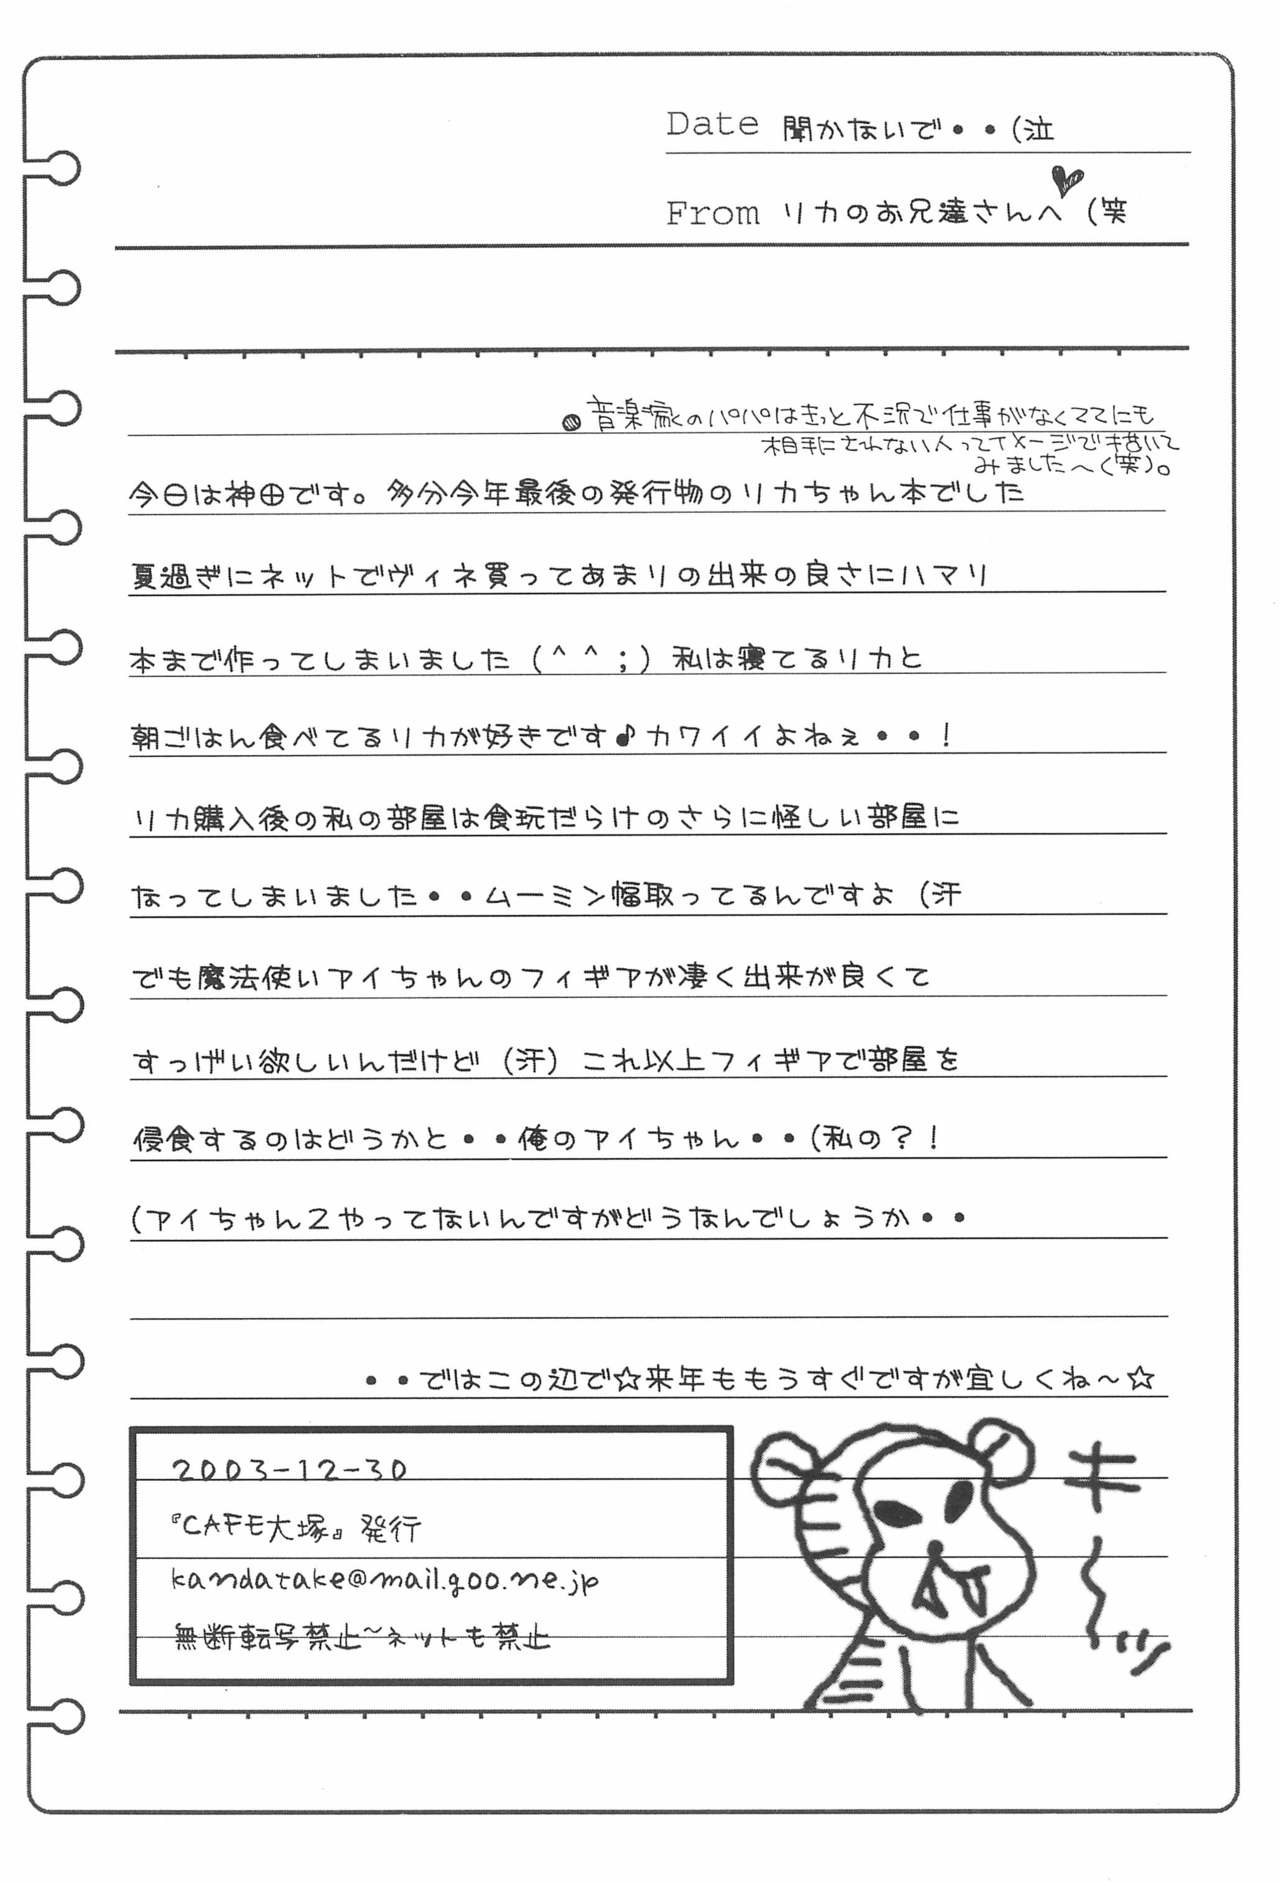 Date 聞かないで・・(泣
From リカのお兄達さんへ♥(笑
●音楽家のパパはきっと不況で仕事がなくてママにも
相手にされない人ってイメージで描いて
みました〜(笑)。
今日は神田です。多分今年最後の発行物のリカちゃん本でした
夏過ぎにネットでヴィネ買ってあまりの出来の良さにハマリ
本まで作ってしまいました(^^;)私は寝てるリカと
朝ごはん食べてるリカが好きです♪カワイイよねぇ・・!
リカ購入後の私の部屋は食玩だらけのさらに怪しい部屋に
なってしまいました・・ムーミン幅取ってるんですよ(汗
でも魔法使いアイちゃんのフィギアが凄く出来が良くて
すっげい欲しいんだけど(汗)これ以上フィギアで部屋を
侵食するのはどうかと・・俺のアイちゃん・・(私の?!
(アイちゃん2やってないんですがどうなんでしょうか・・
・・ではこの辺で☆来年ももうすぐですが宜しくね〜☆
2003-12-30
『CAFE大塚』発行
kandatake@mail.goo.ne.jp
無断転写禁止〜ネットも禁止
キーッ